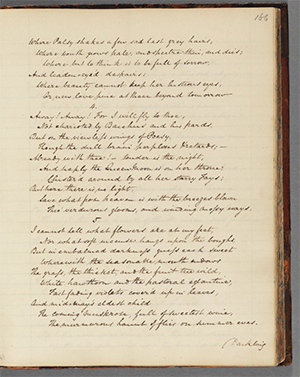 166
Where Palsy shakes a few sad last grey hairs,
Where youth grows pale and spectre thin, and dies;
Where but to think is to be full of sorrow
And leaden-eyed despairs;
Where beauty cannot keep her lustrous eyes,
Or new love pine at them beyond tomorrow
4.
Away! Away! For I will fly to thee,
Not charioted by Bacchus and his pards,
But on the viewless wings of Poesy,
Though the dull brain perplexes & retards;—
Already with thee! tender is the night,
And haply the Queen Moon is on her throne
Cluster'd around by all her starry Fays;
But here there is no light,
Save what from heaven is with the breezes blown
Thro' verdurous glooms, and winding mossy ways.
5.
I cannot tell what flowers are at my feet,
Nor what soft incense hangs upon the boughs
But in embalmed darkness guess each sweet
Wherewith the seasonable month endows
The grass, the thicket, and the fruit tree wild,
White hawthorn and the pastoral eglantine;
Fast fading violets cover'd up in leaves,
And mid-may's eldest child
The coming muskrose, full of sweetest wine,
The murmurous haunt of flies on summer eves.
Darkling